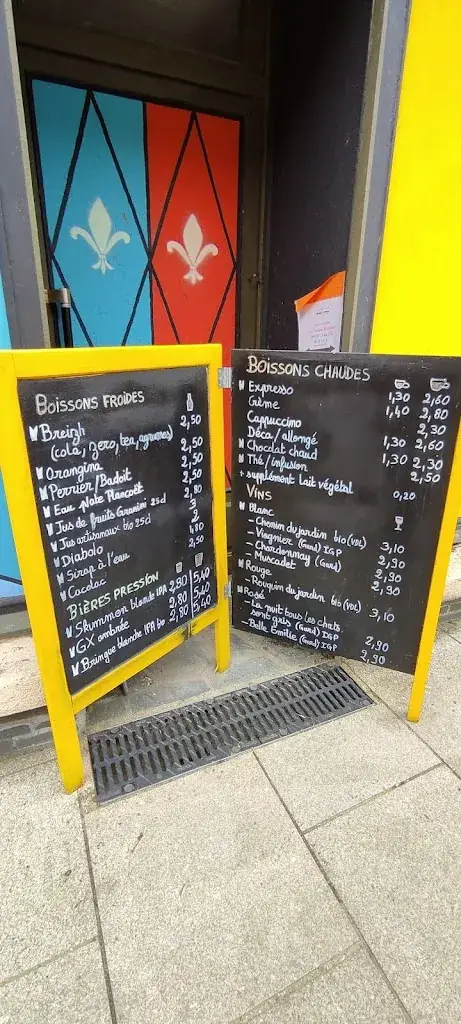 BOISSONS FROIDES
Breigh 2,50
(cola, zero, tea, agrumes)
Orangina 2,50
Perrier/Badoit 2,50
Eau plate Plancoët 2,50
Jus de fruits Granini 25cl 2,80
Jus artisanaux bio 25cl 3
Diabolo 2
Sirop à l'eau
Cacolac 2,50
BIÈRES PRESSION
Stummon blonde IPA 2,80 5,40
GX ambrée 2,80 5,40
Bringue blanche IPA bio 2,80 5,40
BOISSONS CHAUDES
Expresso 1,30 2,60
Crème 1,40 2,80
Cappuccino 2,30
Déca/allongé 1,30 2,60
Chocolat chaud 1,30 2,30
Thé/infusion 2,50
+ supplément Lait végétal 0,20
VINS
Blanc
- Chenin du jardin bio (VDL) 3,10
- Viognier (Gard) IGP 2,90
- Chardonnay (Gard) 2,90
- Muscadet 2,90
Rouge
- Rouquin du jardin bio (VDL) 3,10
Rosé
- La nuit tous les chats
sont gris (Gard) IGP 2,90
- Belle Emilie (Gard) IGP 2,90